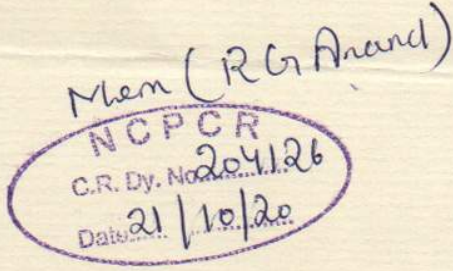 Mem (RG Anand)
NCPCR
C.R. Dy. No. 204126
Date 21/10/20